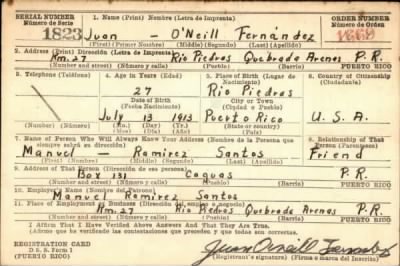 SERIAL NUMBER
Número de Serie
1. Name (Print) Nombre (Letra de Imprenta)
ORDER NUMBER
Número de Orden
1823 Juan — O'Neill Fernández
(First) (Primer Nombre) (Middle) (Segundo) (Last) (Apellido)
2. Address (Print) Dirección (Letra de Imprenta)
Km. 27 Río Piedras Quebrada Arenas P.R.
(Number and street) (Número y calle) (Municipality) (Municipio) (Barrio) PUERTO RICO
3. Telephone (Teléfono)
4. Age in Years (Edad)
27
5. Place of Birth (Lugar de Nacimiento)
Río Piedras
City or Town
(Ciudad o Pueblo)
6. Country of Citizenship
(Ciudadanía)
Date of Birth
(Fecha Nacimiento)
July 13 1913
Puerto Rico
U.S.A.
(Number) (Número)
(Mo.) (Day) (Yr.)
(Mes) (Día) (Año)
(State or country)
7. Name of Person Who Will Always Know Your Address (Nombre de la Persona que siempre sabrá su dirección)
8. Relationship of That Person (Parentesco)
Manuel — Ramirez Santos Friend
(First) (Primer Nombre) (Middle) (Segundo) (Last) (Apellido)
9. Address of That Person (Dirección de esa persona)
Box 131 Caguas P.R.
(Number and street) (Número y calle) (Municipality) (Municipio) (Barrio) PUERTO RICO
10. Employer's Name
Manuel Ramirez Santos
11. Place of Employment or Business (Dirección del empleo o negocio)
Km. 27 Río Piedras Quebrada Arenas P.R.
(Number and street) (Número y calle) (Municipality) (Municipio) (Barrio) PUERTO RICO
I Affirm That I Have Verified Above Answers And That They Are True.
(Afirmo que he verificado las contestaciones que preceden y que todas son correctas.
REGISTRATION CARD
D S S. Form 1
Juan O'neill Fernández
(Registrant's signature) (Firma o marca del Inscrito)